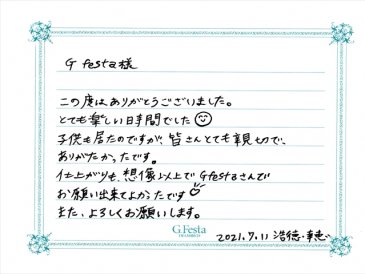 G festa様
この度はありがとうございました。
とても楽しい日時間でした
子供も居たのですが、皆さんとても親切で、
ありがたかったです。
仕上がりも、想像以上で Gfestaさんで
お願い出来てよかったです
また、よろしくお願いします。
G.Festa
2021.7.11